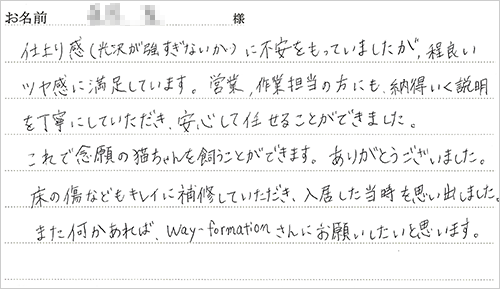 お名前 様
仕上り感(光沢が強すぎないか)に不安をもっていましたが、程良い
ツヤ感に満足しています。営業、作業担当の方にも、納得いく説明
を丁寧にしていただき、安心して任せることができました。
これで念願の猫ちゃんを飼うことができます。ありがとうございました。
床の傷などもキレイに補修していただき、入居した当時を思い出しました。
また何かあれば、way-formationさんにお願いしたいと思います。